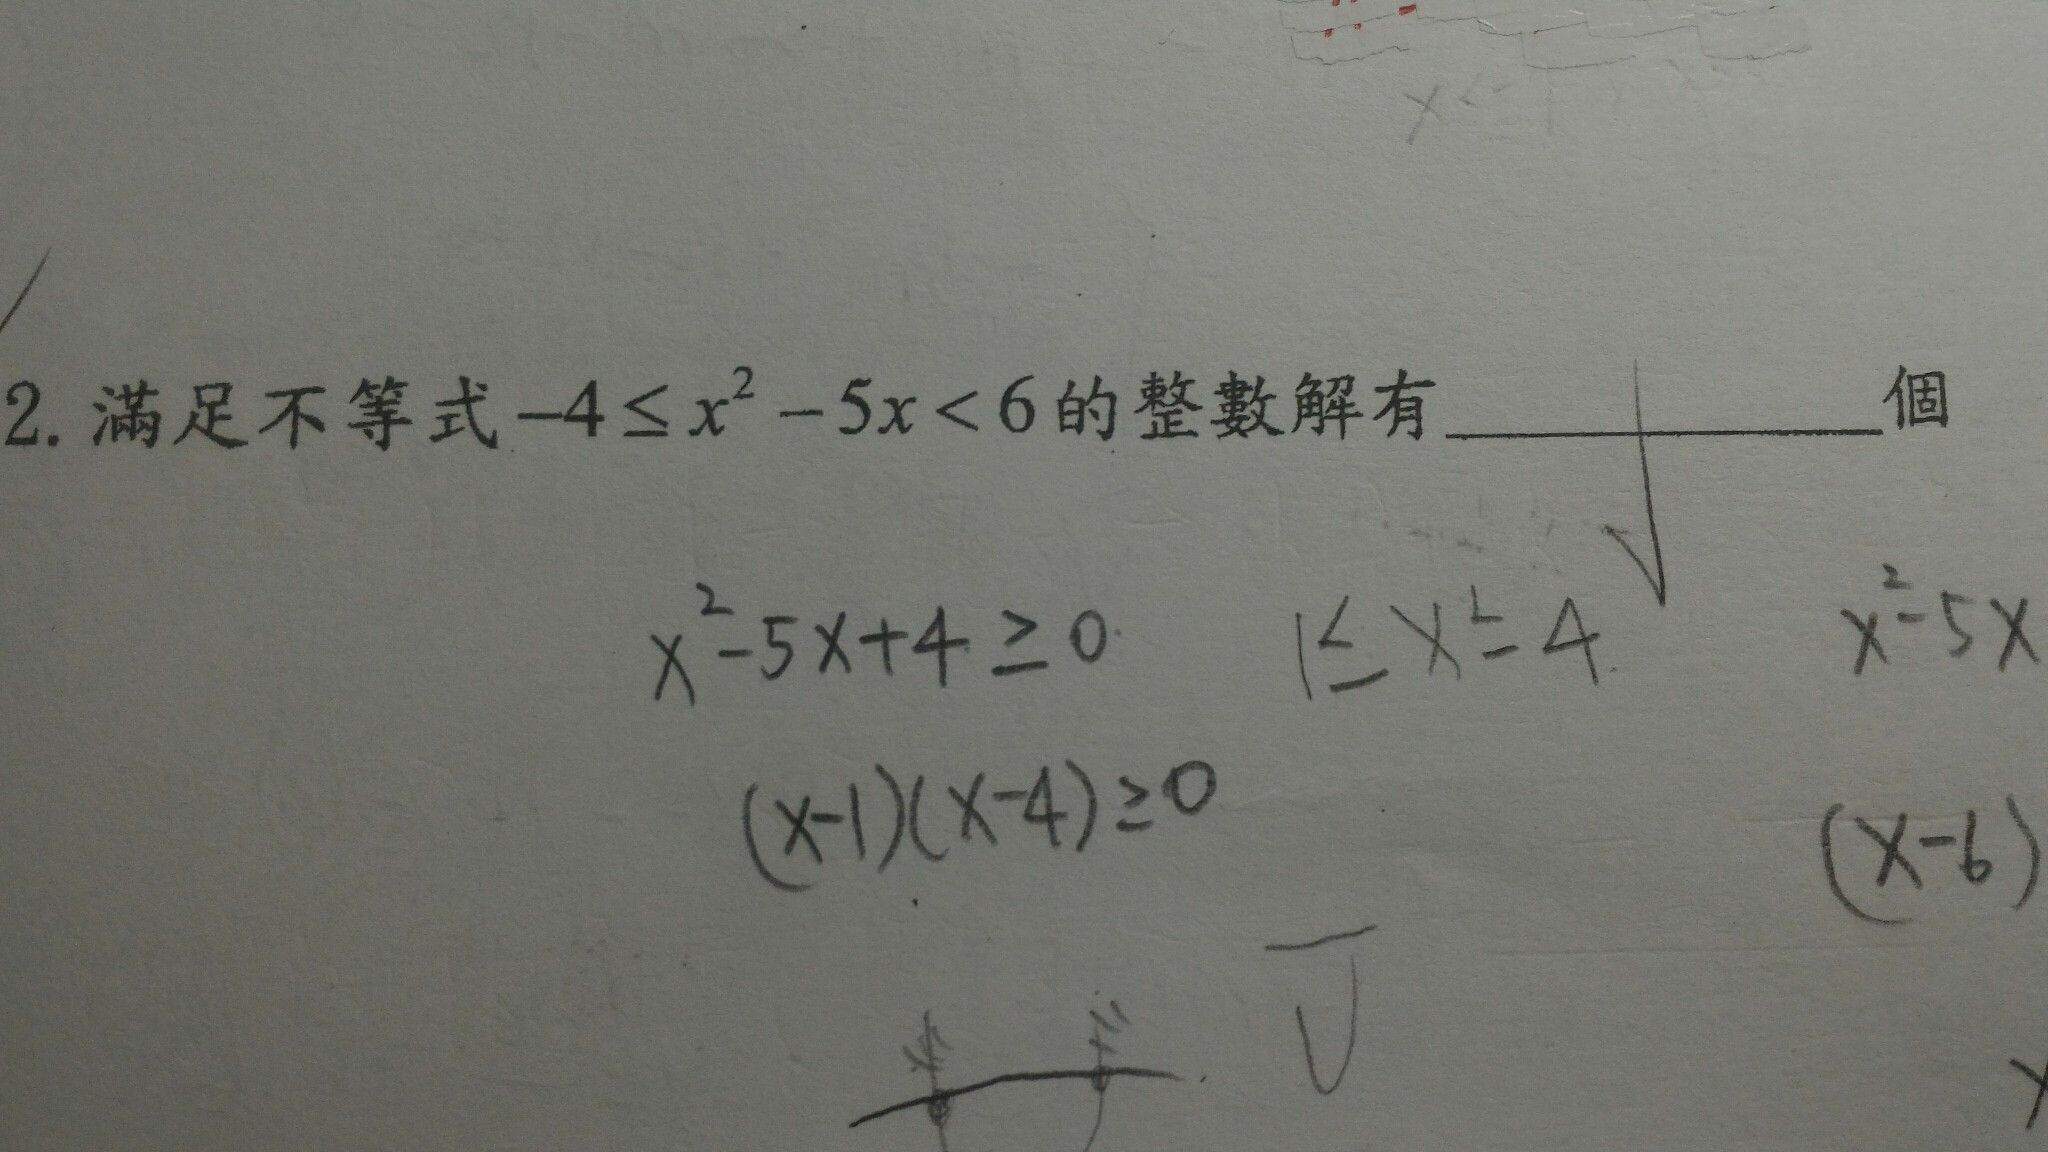 x <
2. 滿足不等式 −4 ≤ x² − 5x < 6 的整數解有＿＿＿＿＿＿個
x²-5x+4 ≥ 0 1 ≤ x ≤ 4 x²-5x
(x-1)(x-4) ≥ 0 (x-6)